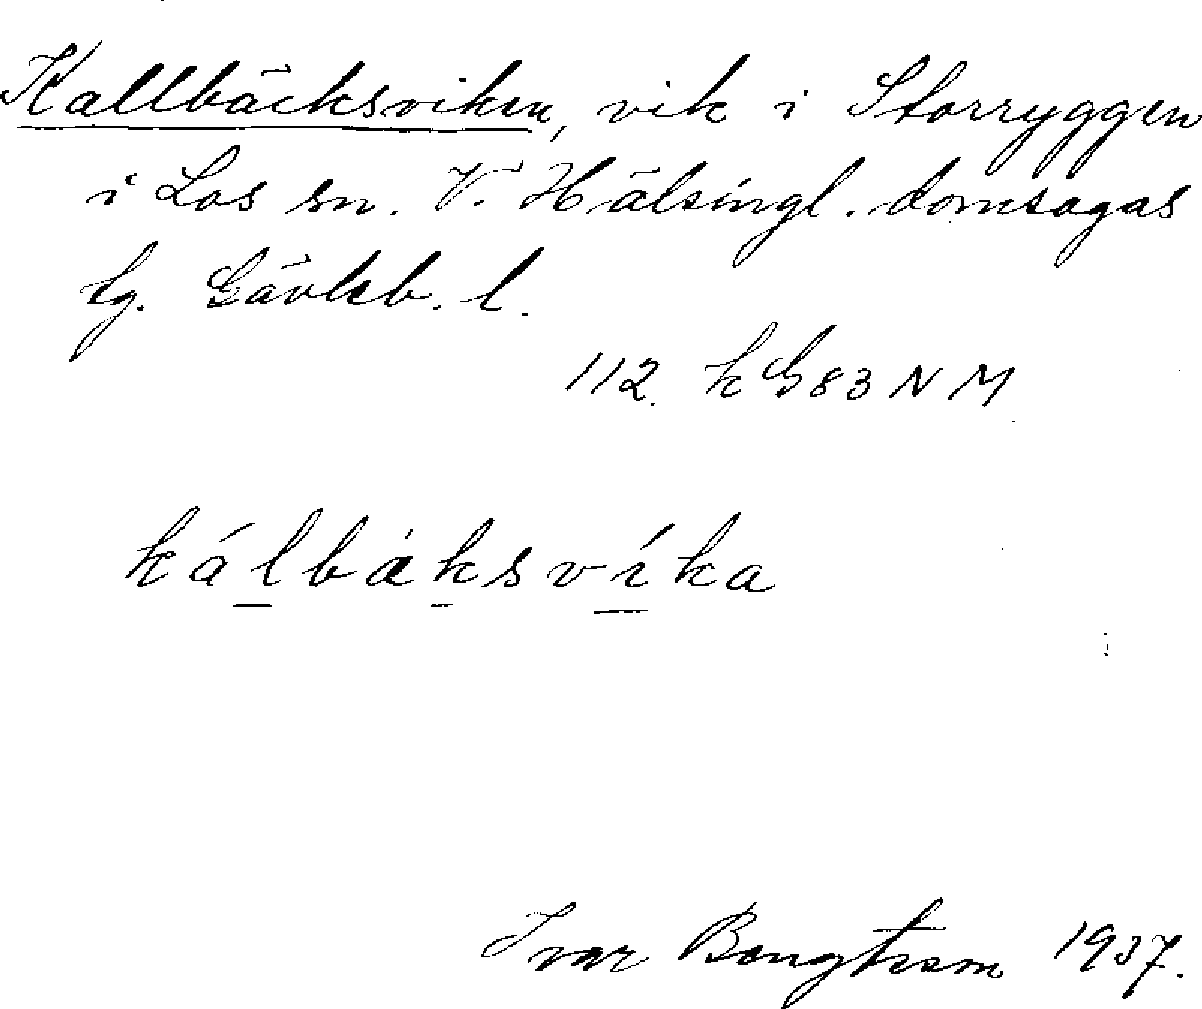 Kallbäcksviken, vik i Storryggen
i Los sn. V. Hälsingl. domsagas
tg. Gävleb. l.
112. k G 83 N M
kálbàksvíka
Ivar 1937.